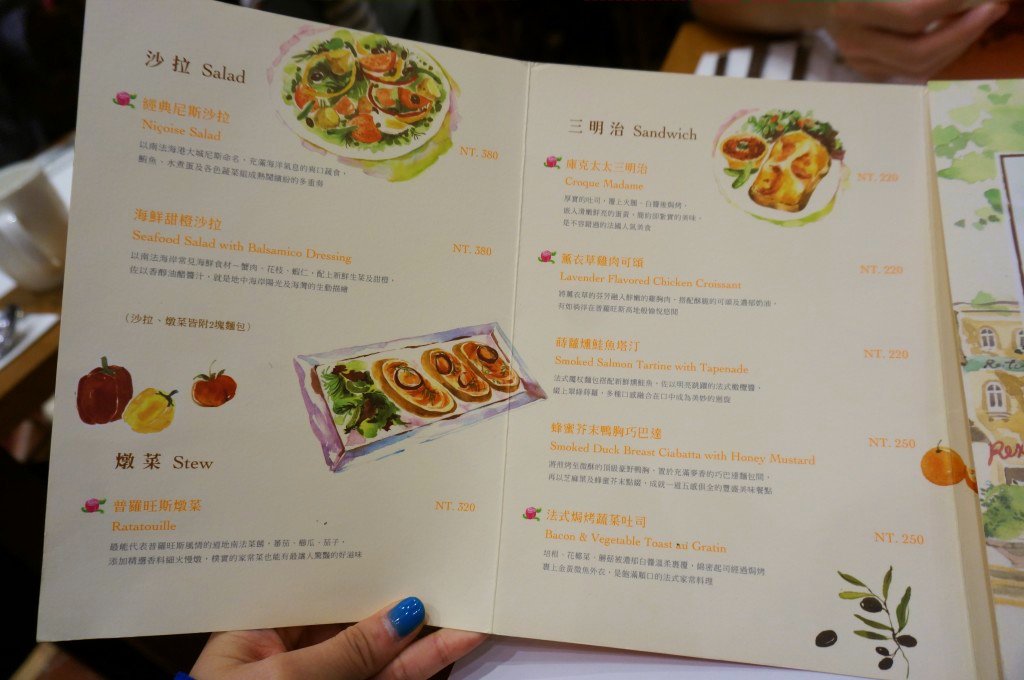 沙拉 Salad
經典尼斯沙拉
Niçoise Salad
NT. 380
以南法海港大城尼斯命名，充滿海洋氣息的爽口蔬食，
鮪魚、水煮蛋及各色蔬菜組成熱鬧繽紛的多重奏
海鮮甜橙沙拉
Seafood Salad with Balsamico Dressing
NT. 380
以南法海岸常見海鮮食材－蟹肉、花枝、蝦仁，配上新鮮生菜及甜橙，
佐以香醇油醋醬汁，就是地中海岸陽光及海灣的生動描繪
（沙拉、燉菜皆附2塊麵包）
燉菜 Stew
普羅旺斯燉菜
Ratatouille
NT. 320
最能代表普羅旺斯風情的道地南法菜餚，蕃茄、櫛瓜、茄子，
添加精選香料細火慢燉，樸實的家常菜也能有最讓人驚豔的好滋味
三明治 Sandwich
庫克太太三明治
Croque Madame
NT. 220
厚實的吐司，覆上火腿、白醬後焗烤，
嵌入滑嫩鮮亮的蛋黃，簡約卻紮實的美味，
是不容錯過的法國人氣美食
薰衣草雞肉可頌
Lavender Flavored Chicken Croissant
NT. 220
將薰衣草的芬芳融入鮮嫩的雞胸肉，搭配酥脆的可頌及濃郁奶油，
有如徜徉在普羅旺斯高地般愉悅悠閒
蒔蘿燻鮭魚塔汀
Smoked Salmon Tartine with Tapenade
NT. 220
法式魔杖麵包搭配新鮮燻鮭魚，佐以明亮跳躍的法式橄欖醬，
綴上翠綠蒔蘿，多種口感融合在口中成為美妙的迴旋
蜂蜜芥末鴨胸巧巴達
Smoked Duck Breast Ciabatta with Honey Mustard
NT. 250
將煎烤至微酥的頂級豪野鴨胸，置於充滿麥香的巧巴達麵包間，
再以芝麻葉及蜂蜜芥末點綴，成就一道五感俱全的豐盛美味餐點
法式焗烤蔬菜吐司
Bacon & Vegetable Toast au Gratin
NT. 250
培根、花椰菜、蘑菇被濃郁白醬溫柔裹覆，綿密起司經過焗烤
裹上金黃微焦外衣，是飽滿順口的法式家常料理